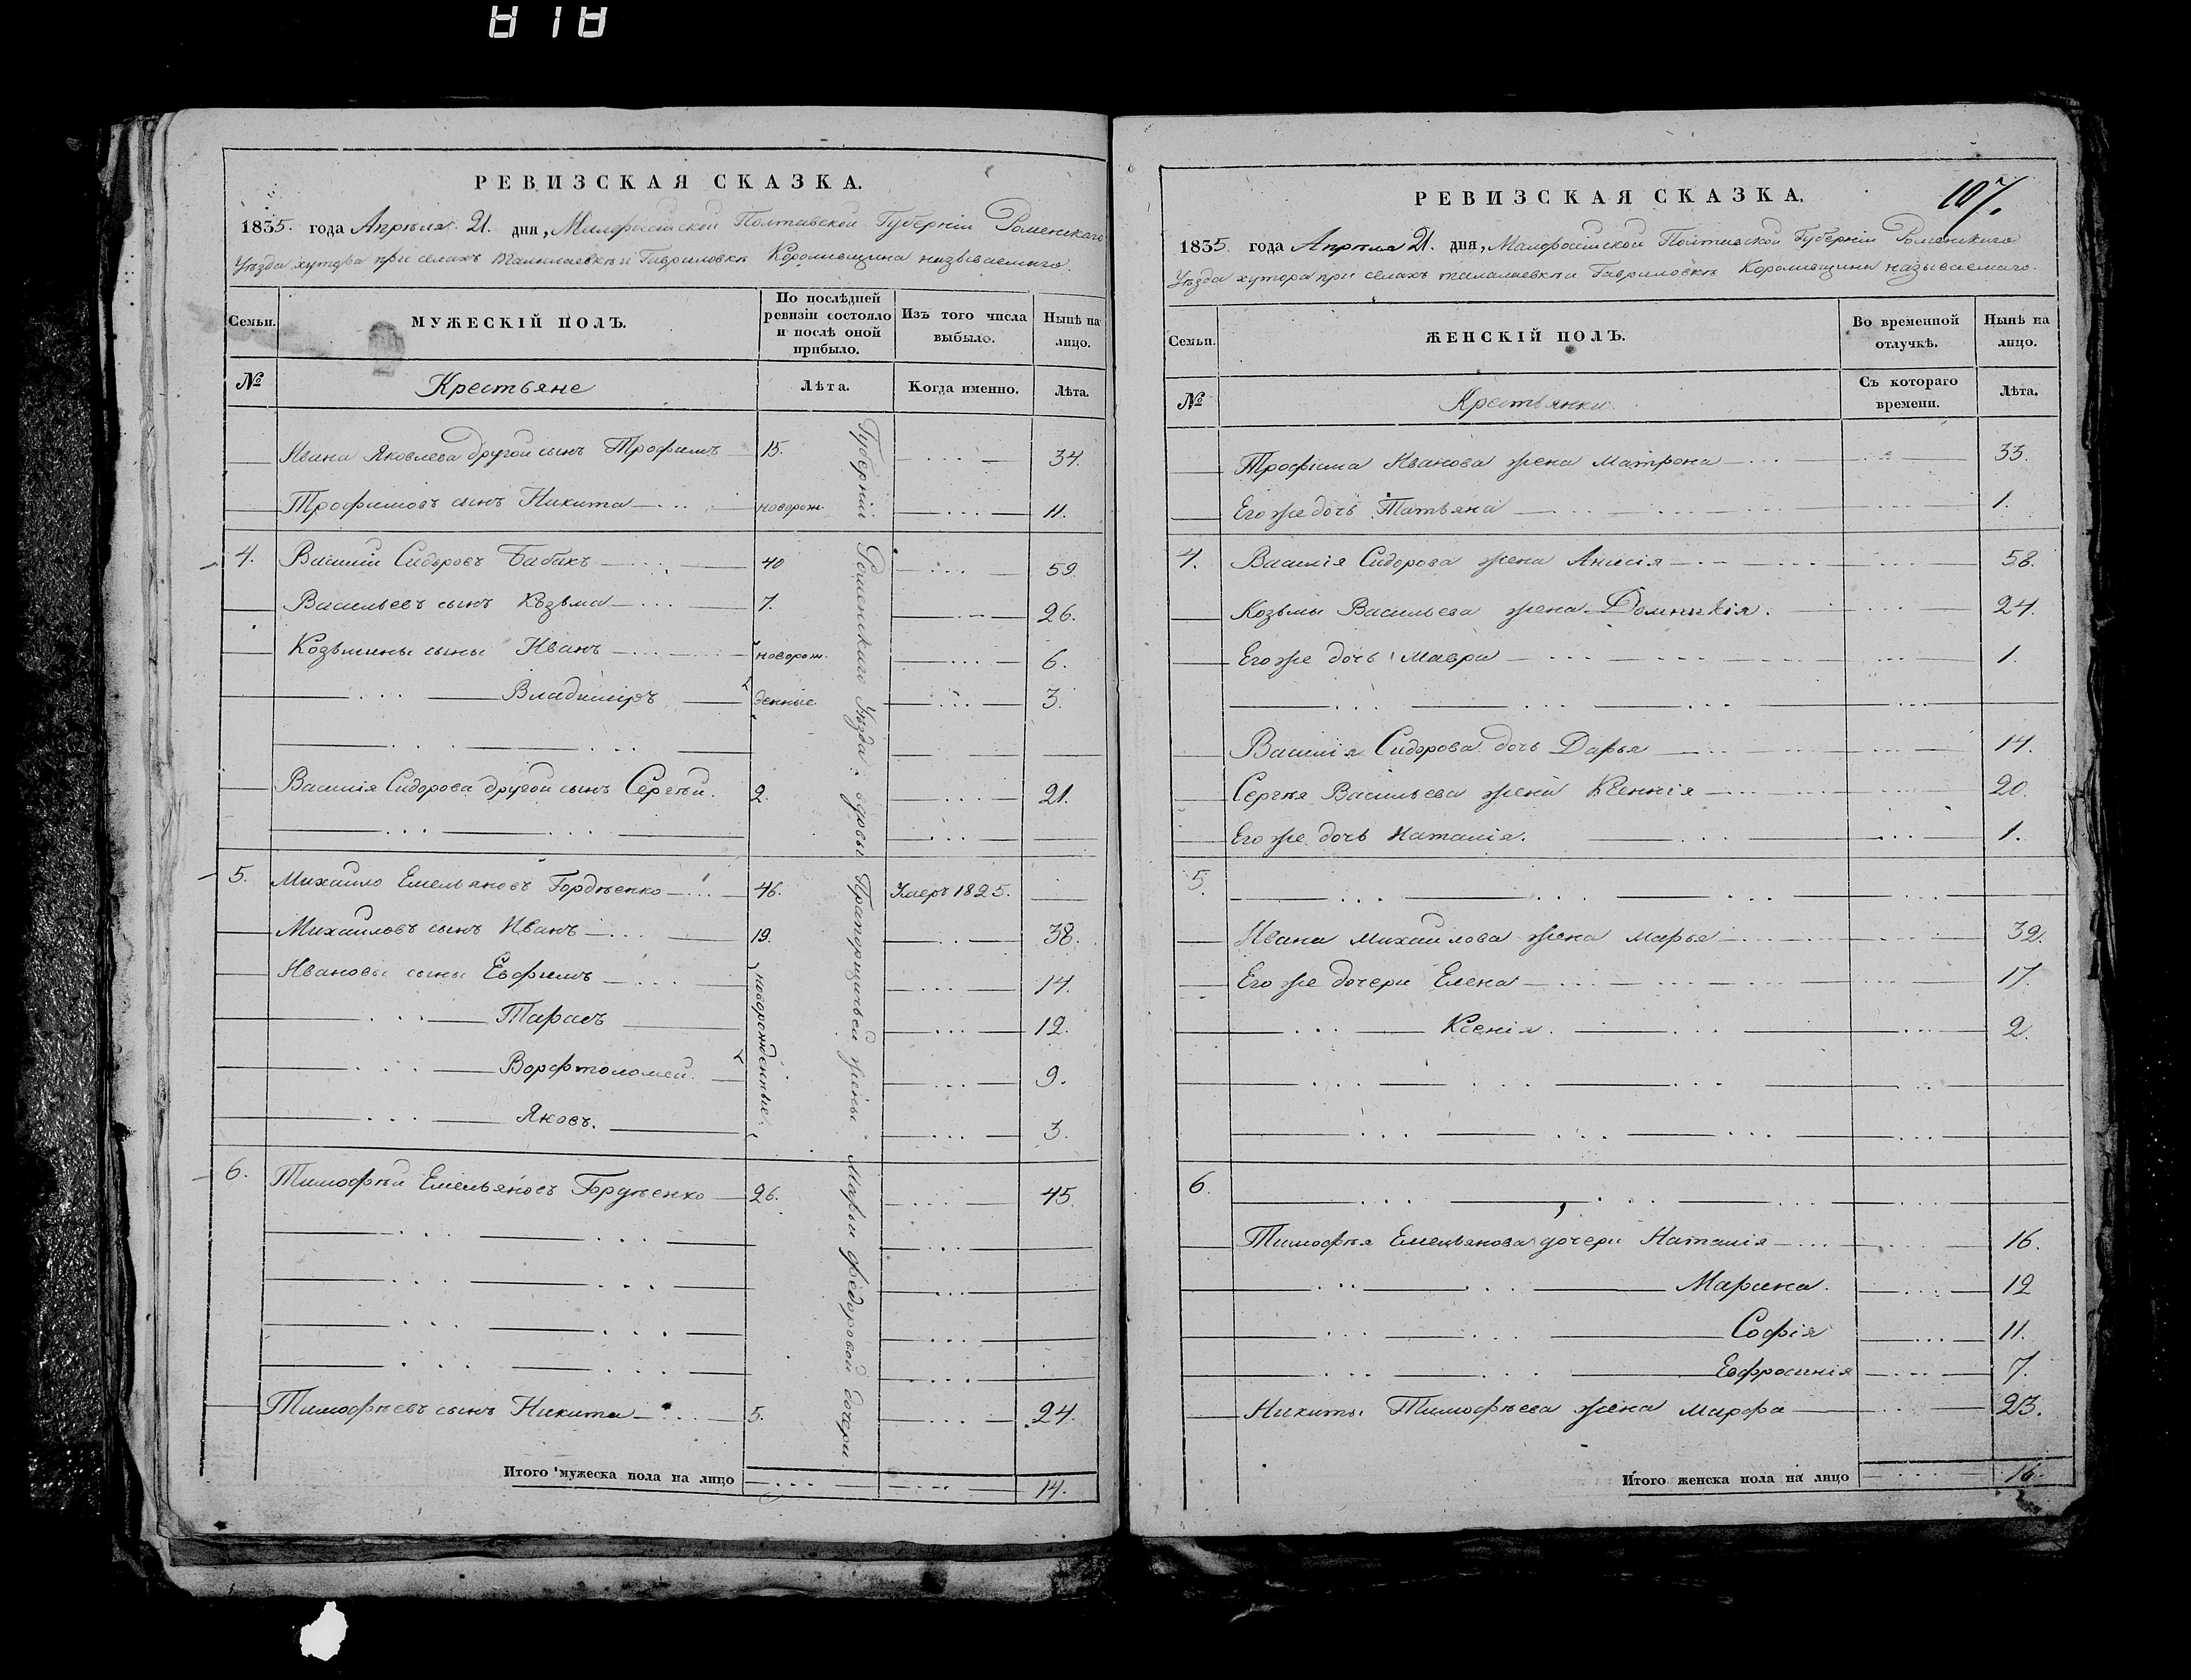 818
РЕВИЗСКАЯ СКАЗКА.
1835. года Апрѣля 21. дня, Малороссійской Полтавской Губерніи Роменскаго
Уѣзда хутора при селахъ Талалаевкѣ и Гавриловкѣ Королевщина называемаго.
Семьи.
МУЖЕСКІЙ ПОЛЪ.
По послѣдней ревизіи состояло и послѣ оной прибыло.
Изъ того числа выбыло.
Нынѣ на лицо.
№
Крестьяне
Лѣта.
Когда именно.
Лѣта.
Ивана Яковлева другой сынъ Трофимъ 15. 34.
Трофимовъ сынъ Никита новорож. 11.
4. Василій Сидоровъ Бабакъ 40 59.
Васильевъ сынъ Козьма 7. 26.
Козьмины сыны Иванъ новорож. 6.
Владимиръ денные 3.
Василія Сидорова другой сынъ Сергѣй. 2. 21.
5. Михайло Емельяновъ Гордѣенко 46. Умеръ 1825.
Михайловъ сынъ Иванъ 19. 38.
Ивановы сыны Евфимъ новорожденные. 14.
Тарасъ 12.
Ворфтоломей 9.
Яковъ. 3.
6. Тимофѣй Емельяновъ Гордѣенко 26. 45.
Тимофѣевъ сынъ Никита 5. 24.
Итого мужеска пола на лицо 14.
Губерніи Роменскаго Уѣзда: Прапорщичьей жены Марьи Федоровой дочери
РЕВИЗСКАЯ СКАЗКА.
107.
1835. года Апрѣля 21. дня, Малороссійской Полтавской Губерніи Роменскаго
Уѣзда хутора при селахъ Талалаевкѣ и Гавриловкѣ Королевщина называемаго.
Семьи.
ЖЕНСКІЙ ПОЛЪ.
Во временной отлучкѣ.
Нынѣ на лицо.
№
Крестьянки
Съ котораго времени.
Лѣта.
Трофима Иванова жена Матрона 33.
Его же дочь Татьяна 1.
4. Василія Сидорова жена Анисія 58.
Козьмы Васильева жена Домникія. 24.
Его же дочь Мавра 1.
Василія Сидорова дочь Дарья 14.
Сергѣя Васильева жена Ксеннія 20.
Его же дочь Наталія. 1.
5.
Ивана Михайлова жена Марья 32.
Его же дочери Елена 17.
Ксенія. 2.
6.
Тимофѣя Емельянова дочери Наталія 16.
Марина. 12
Софія 11.
Евфросинія 7.
Никиты Тимофѣева жена Марфа 23.
Итого женска пола на лицо 16.